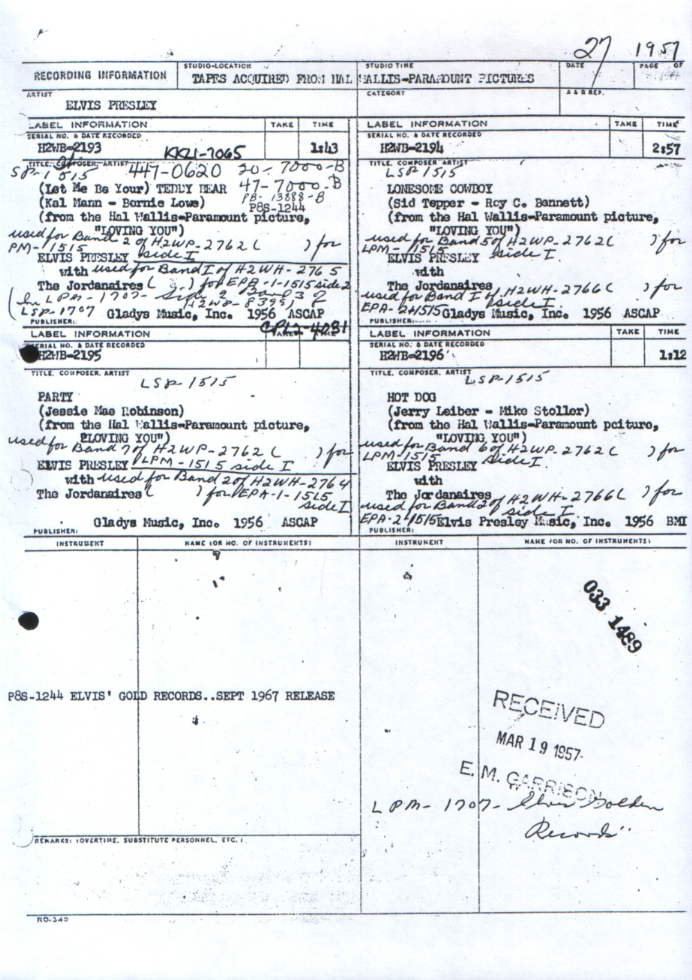 27 1957
RECORDING INFORMATION
STUDIO-LOCATION
TAPES ACQUIRED FROM HAL WALLIS-PARAMOUNT PICTURES
STUDIO TIME
DATE
PAGE OF
ARTIST
ELVIS PRESLEY
CATEGORY
A & R REP.
LABEL INFORMATION TAKE TIME
SERIAL NO. & DATE RECORDED
H2WB-2193 KKL1-7065 1:43
TITLE, COMPOSER, ARTIST
LSP-1515 447-0620 20-7000-B
(Let Me Be Your) TEDDY BEAR 47-7000-B
(Kal Mann - Bernie Lowe) PB-13888-B
P8S-1244
(from the Hal Wallis-Paramount picture,
"LOVING YOU")
used for Band 2 of H2WP-2762 ( ) for
LPM-1515 side I
ELVIS PRESLEY
with used for Band I of H2WH-2765
The Jordanaires ( ) for EPA-1-1515 side 2
LSP-1707
Gladys Music, Inc. 1956 ASCAP
PUBLISHER:
LABEL INFORMATION TAKE TIME
SERIAL NO. & DATE RECORDED
H2WB-2194 2:57
TITLE, COMPOSER, ARTIST
LSP-1515
LONESOME COWBOY
(Sid Tepper - Roy C. Bennett)
(from the Hal Wallis-Paramount picture,
"LOVING YOU")
used for Band 5 of H2WP-2762 ( ) for
LPM-1515 side I
ELVIS PRESLEY
with
The Jordanaires
used for Band I of H2WH-2766 ( ) for
EPA-2-1515 side I
Gladys Music, Inc. 1956 ASCAP
PUBLISHER:
CPL2-4031
LABEL INFORMATION TAKE TIME
SERIAL NO. & DATE RECORDED
H2WB-2195
TITLE, COMPOSER, ARTIST
LSP-1515
PARTY
(Jessie Mae Robinson)
(from the Hal Wallis-Paramount picture,
"LOVING YOU")
used for Band 7 of H2WP-2762 ( ) for
ELVIS PRESLEY LPM-1515 side I
with used for Band 2 of H2WH-2764
The Jordanaires ( ) for EPA-1-1515
side I
Gladys Music, Inc. 1956 ASCAP
PUBLISHER:
LABEL INFORMATION TAKE TIME
SERIAL NO. & DATE RECORDED
H2WB-2196 1:12
TITLE, COMPOSER, ARTIST
LSP-1515
HOT DOG
(Jerry Leiber - Mike Stoller)
(from the Hal Wallis-Paramount pciture,
"LOVING YOU")
used for Band 6 of H2WP-2762 ( ) for
LPM-1515 side I
ELVIS PRESLEY
with
The Jordanaires
used for Band 2 of H2WH-2766 ( ) for
EPA-2-1515 side I
Elvis Presley Music, Inc. 1956 BMI
PUBLISHER:
INSTRUMENT NAME (OR NO. OF INSTRUMENTS) INSTRUMENT NAME (OR NO. OF INSTRUMENTS)
033 1489
P8S-1244 ELVIS' GOLD RECORDS..SEPT 1967 RELEASE
RECEIVED
MAR 19 1957
E. M. GARRISON
LPM-1707- Elvis Golden
Records"
REMARKS: (OVERTIME, SUBSTITUTE PERSONNEL, ETC.)